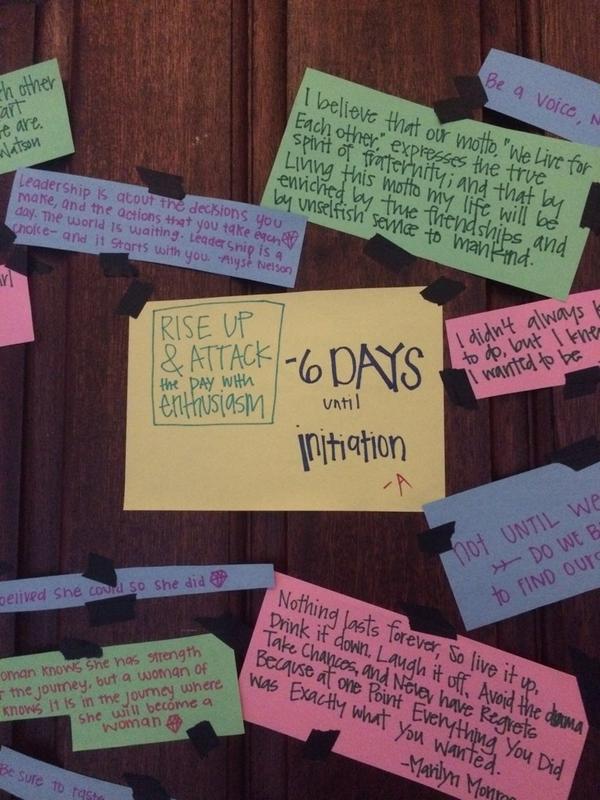 ch other
art
e are.
Watson
Be a voice, N
I believe that our motto, "We Live for
Each other," expresses the true
spirit of fraternity; and that by
Living this motto my life will be
enriched by true friendships and
by unselfish service to mankind.
Leadership is about the decisions you
make, and the actions that you take each
day. The world is waiting. Leadership is a
choice- and it starts with you. -Alyse Nelson
RISE UP
& ATTACK
the DAY with
enthusiasm
-6 DAYS
until
initiation
-A
I didn't always k
to do, but I knew
I wanted to be
not UNTIL we
DO WE B
to FIND OURS
belived she could so she did
oman knows she has strength
r the journey, but a woman of
knows it is in the journey where
she will become a
woman
Nothing lasts forever, So live it up,
Drink it down, Laugh it off, Avoid the drama
Take Chances, and Never have Regrets
Because at one Point Everything You Did
was Exactly what You Wanted.
-Marilyn Monro
Be sure to taste